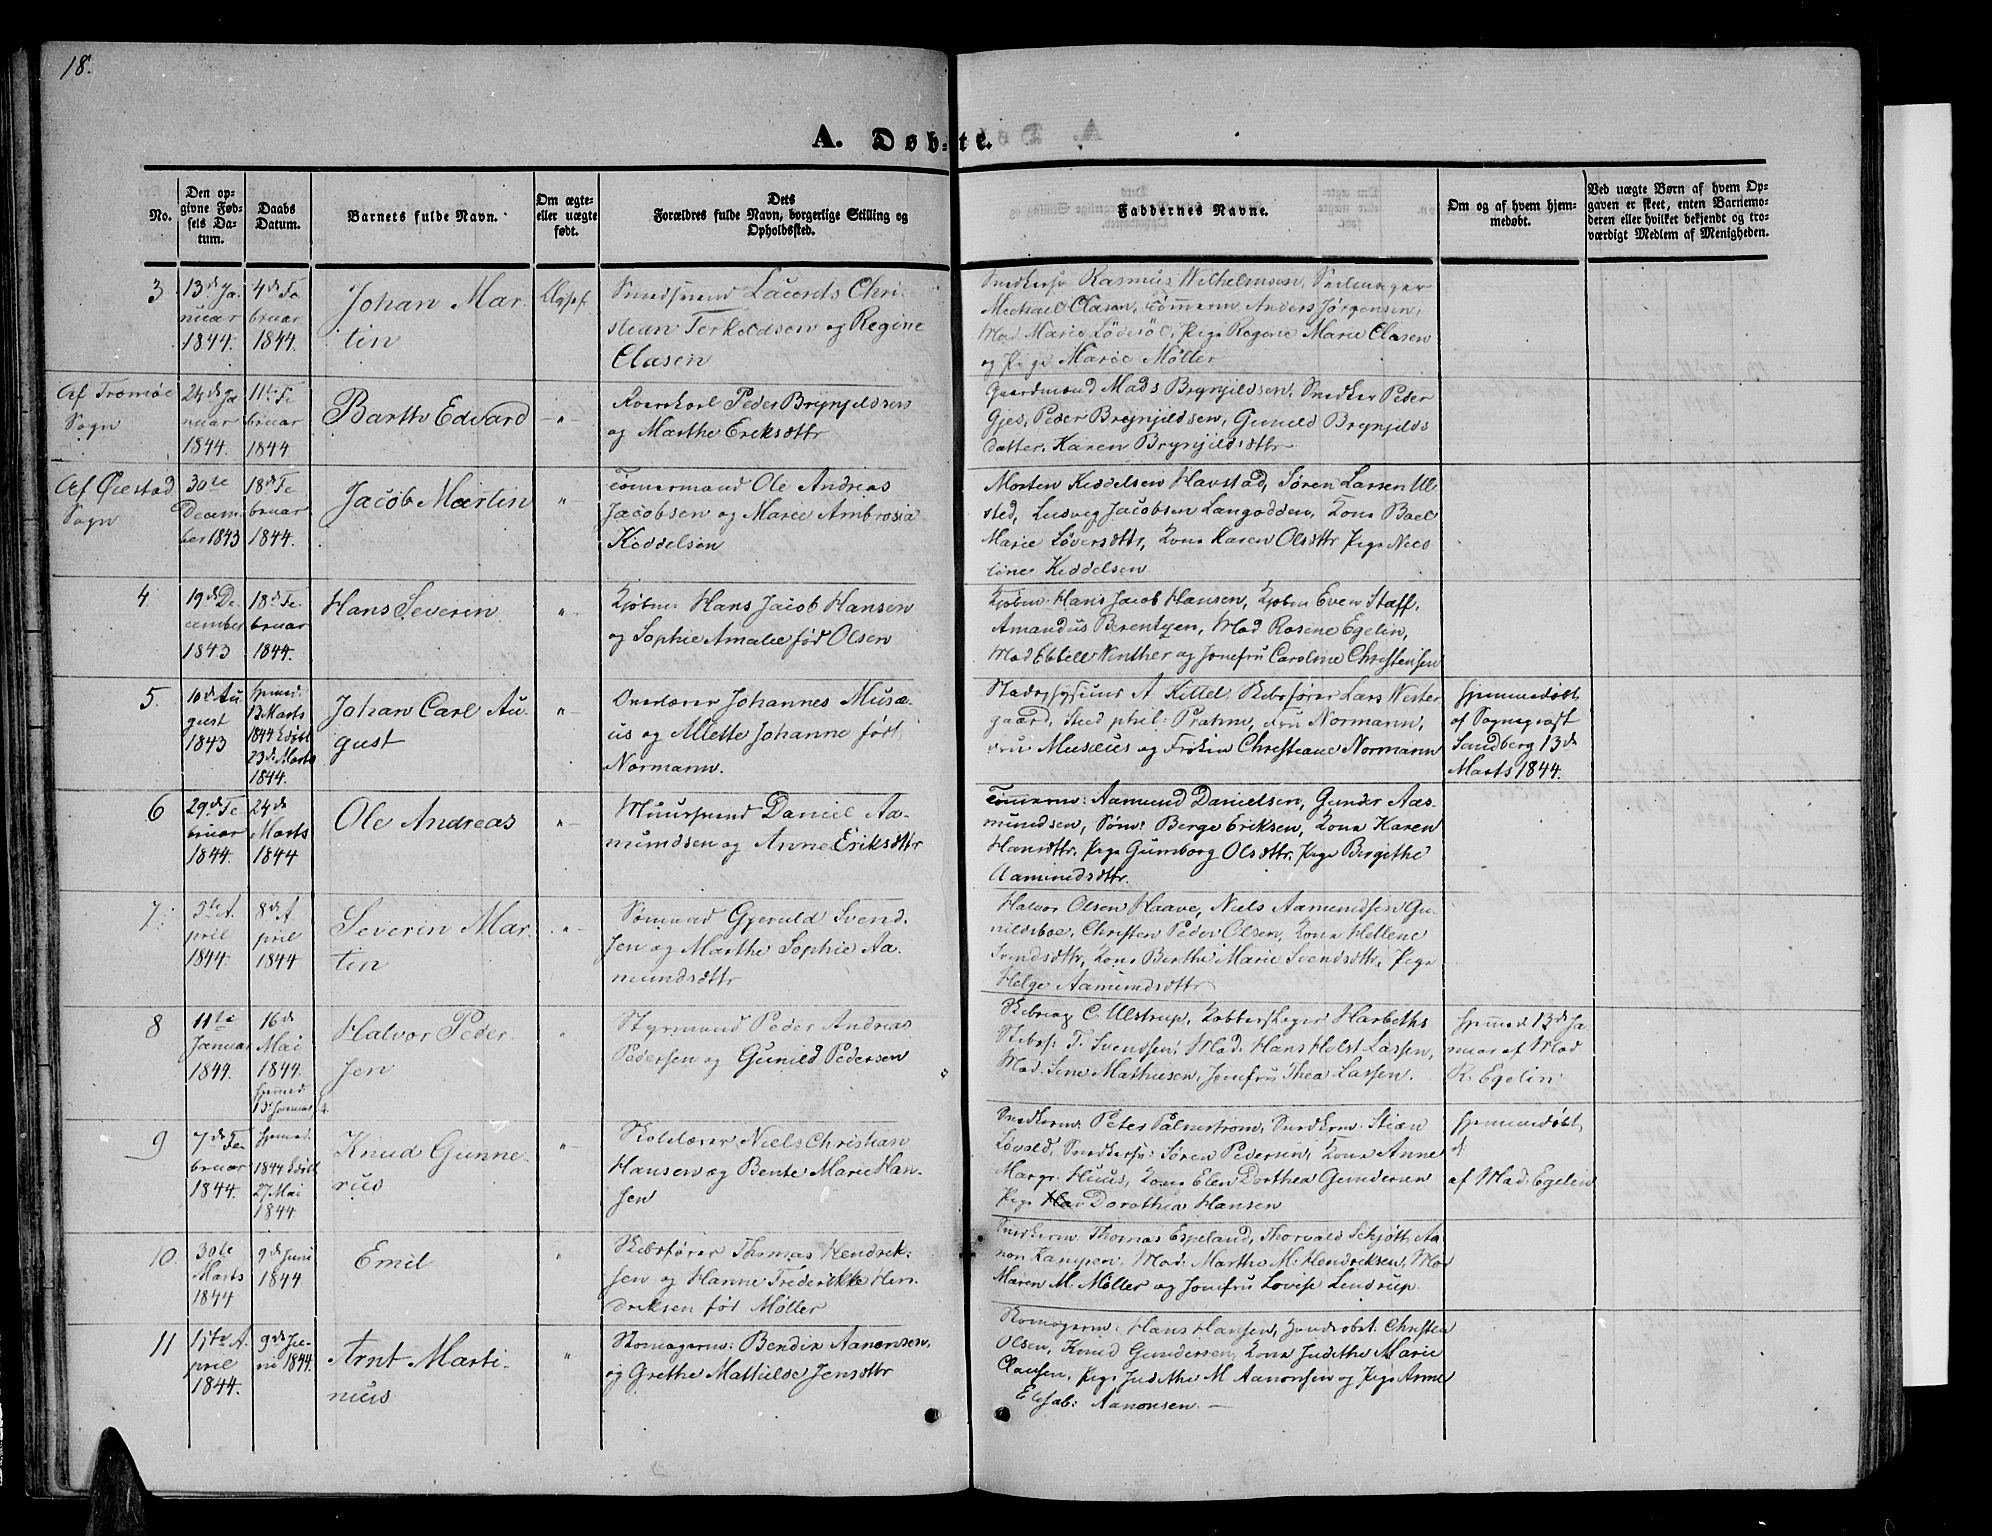 18.
A. Døb-te.
No.
Den op-
givne Fød-
sels Da-
tum.
Daabs
Datum.
Barnets fulde Navn.
Om ægte-
eller uægte
født.
Dets
Forældres fulde Navn, borgerlige Stilling og
Opholdssted.
Faddernes Navne.
Om og af hvem hjem-
medøbt.
Ved uægte Børn af hvem Op-
gaven er skeet, enten Barnemo-
deren eller hvilket bekjendt og tro-
værdigt Medlem af Menigheden.
3
13de Ja
nuar
1844.
4de Fe
bruar
1844.
Johan Mar
tin
Smedsvend Laurits Chri
stian Terkeldsen og Regine
Clasen
Snedkersv Rasmus Wilhelmsen, Seilmager
Michael Clasen, Tømmerm Anders Jørgensen,
Mad Marie Lødesøl, Pige Regine Marie Clasen
og Pige Marie Møller
Af Tromøe
Sogn
24de Ja
nuar
1844.
11te Fe
bruar
1844
Barth Edvard
-"-
Peder Brynjildsen
og Marthe Eriksdttr
Gaardmand Mads Brynjildsen, Snedker Peder
Gjes, Peder Brynjildsen, Gunild Brynjilds
datter, Karen Brynjildsdttr
Af Øiestad
Sogn
30te
Decem
ber 1843
18de Fe
bruar
1844.
Jacob Martin
"
Tømermand Ole Andreas
Jacobsen og Marie Ambrosia
Kiddelsen
Morten Kiddelsen Havstad, Søren Larsen Ul
sted, Ludvig Jacobsen Langodden, Kone Boel
Marie Løversdttr, Kone Karen Olsdttr Pige Nico
line Kiddelsen
4
19de De
cember
1843
18de Fe
bruar
1844.
Hans Severin
"-
Kjøbm Hans Jacob Hansen
og Sophie Amalie fød Olsen
Kjøbm. Hans Jacob Hansen, Kjøbm Even Staff,
Amandus Berentzen, Mad Rosine Egelin,
Mad Ebbell Winther og Jomfru Caroline Christensen
5.
10de Au
gust
1843
hjemmed.
13 Marts
1844
23de Marts
1844.
Johan Carl Au-
gust
"-
Overlærer Johannes Musæ-
us og Alette Johanne født
Normann.
Stadsphysicus A Kittel, Skibsfører Lars Wester
gaard, Stud phil: Prahm, Fru Normann,
Fru Musæus og Frøkin Christiane Normann
hjemmedøbt
af Sogneprest
Sandberg 13de
Marts 1844.
6
29de Fe
bruar
1844.
24de
Marts
1844
Ole Andreas
"-
Muursvend Daniel Aa-
mundsen og Anne Eriksdttr
Tømmerm: Aamund Danielsen, Gunder Aas-
mundsen, Søm: Berge Eriksen, Kone Karen
Hansdttr, Pige Gumborg Olsdttr, Pige Bergithe
Aamundsdttr.
7.
5te A
pril
1844.
8de A
pril
1844
Severin Mar
tin
"-
Sømand Gjeruld Svend-
sen og Marthe Sophie Aa-
mundsdttr
Halvor Olsen Haave, Niels Aamundsen Gu-
nildsboe, Christen Peder Olsen, Kone Hellene
Svendsdttr, Kone Berthe Marie Svendsdttr, Pige
Helge Aamundsdttr
8
11te
Januar
1844.
16de
Mai
1844.
hjemmed
13 Januar
Halvor Peder
sen
"
Styrmand Peder Andreas
Pedersen og Gunild Pedersen
Skibsrig C. Ulstrup, Kobberslager Harbeths
Skibsf. T. Svendsen, Mad: Hans Holst Lassen,
Mad: Sine Mathiesen, Jomfru Thea Lassen.
hjemmed 13de Ja
nuar af Mad
R. Egelin
9
7de Fe
bruar
1844.
hjemmed.
1844
27 Mai
1844
Knud Gunne-
rius
"
Skolelærer Niels Christian
Hansen og Bente Marie Han-
sen
Snedkerm: Peter Palmstrøm, Snedkerm. Stian
Løvald, Snedkersv: Søren Pedersen, Kone Anne
Margr. Huus, Kone Elen Dorthea Gundersen
Pige Dorothea Hansen
hjemmedøbt
af Mad. Egelin
10
30te
Marts
1844
9de Juni
1844
Emil
"
Skibsfører Thomas Hendrik-
sen og Hanne Frederikke Hen
driksen fød Møller
Snedkerm Thomas Espeland, Thorvald Schjøtt, Aa
non Mad: Marthe M. Hendriksen, Mad
Maren M. Møller og Jomfru Lovise Lindrup.
11
17te A
pril
1844.
9de Ju-
ni 1844.
Arnt Marti-
nius
"
Skomagerm: Bendix Aanonsen,
og Grethe Mathilde Jensdttr
Skomagerm. Hans Hansen, Christen
Olsen, Knud Gundersen, Kone Judithe Marie
Clausen, Pige Judithe M Aanonsen og Pige Anne
Elisab: Aanonsen. —